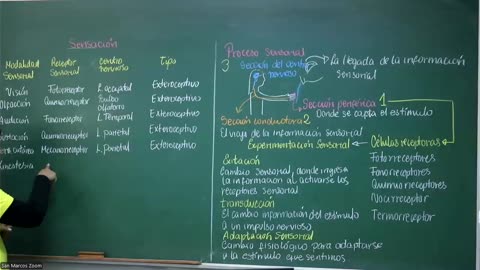 Sensación
Modalidad Sensorial
Receptor Sensorial
Centro nervioso
Tipo
Visión Fotorreceptor L. occipital Exteroceptivo
Olfacción Quimiorreceptor Bulbo olfatorio Exteroceptivo
Audición Fonoreceptor L. Temporal Exteroceptivo
Gustación Quimiorreceptor L. parietal Exteroceptivo
Mecanoreceptor L. parietal Exteroceptivo
Cinestesia
Proceso Sensorial
3 Sección del centro nervioso
La llegada de la información sensorial
Sección periférica 1
Donde se capta el estímulo
Sección conductora 2
El viaje de la información sensorial
Experimentación Sensorial
Células receptoras
Fotorreceptores
Fonoreceptores
Quimiorreceptores
Nocirreceptor
Termorreceptor
Exitación
Cambio Sensorial, donde ingresa
la información al activarse los
receptores sensorial
Transducción
El cambio información del estímulo
a un impulso nervioso
Adaptación Sensorial
Cambio fisiológico para adaptarse
a la estímulo que sentimos
San Marcos Zoom